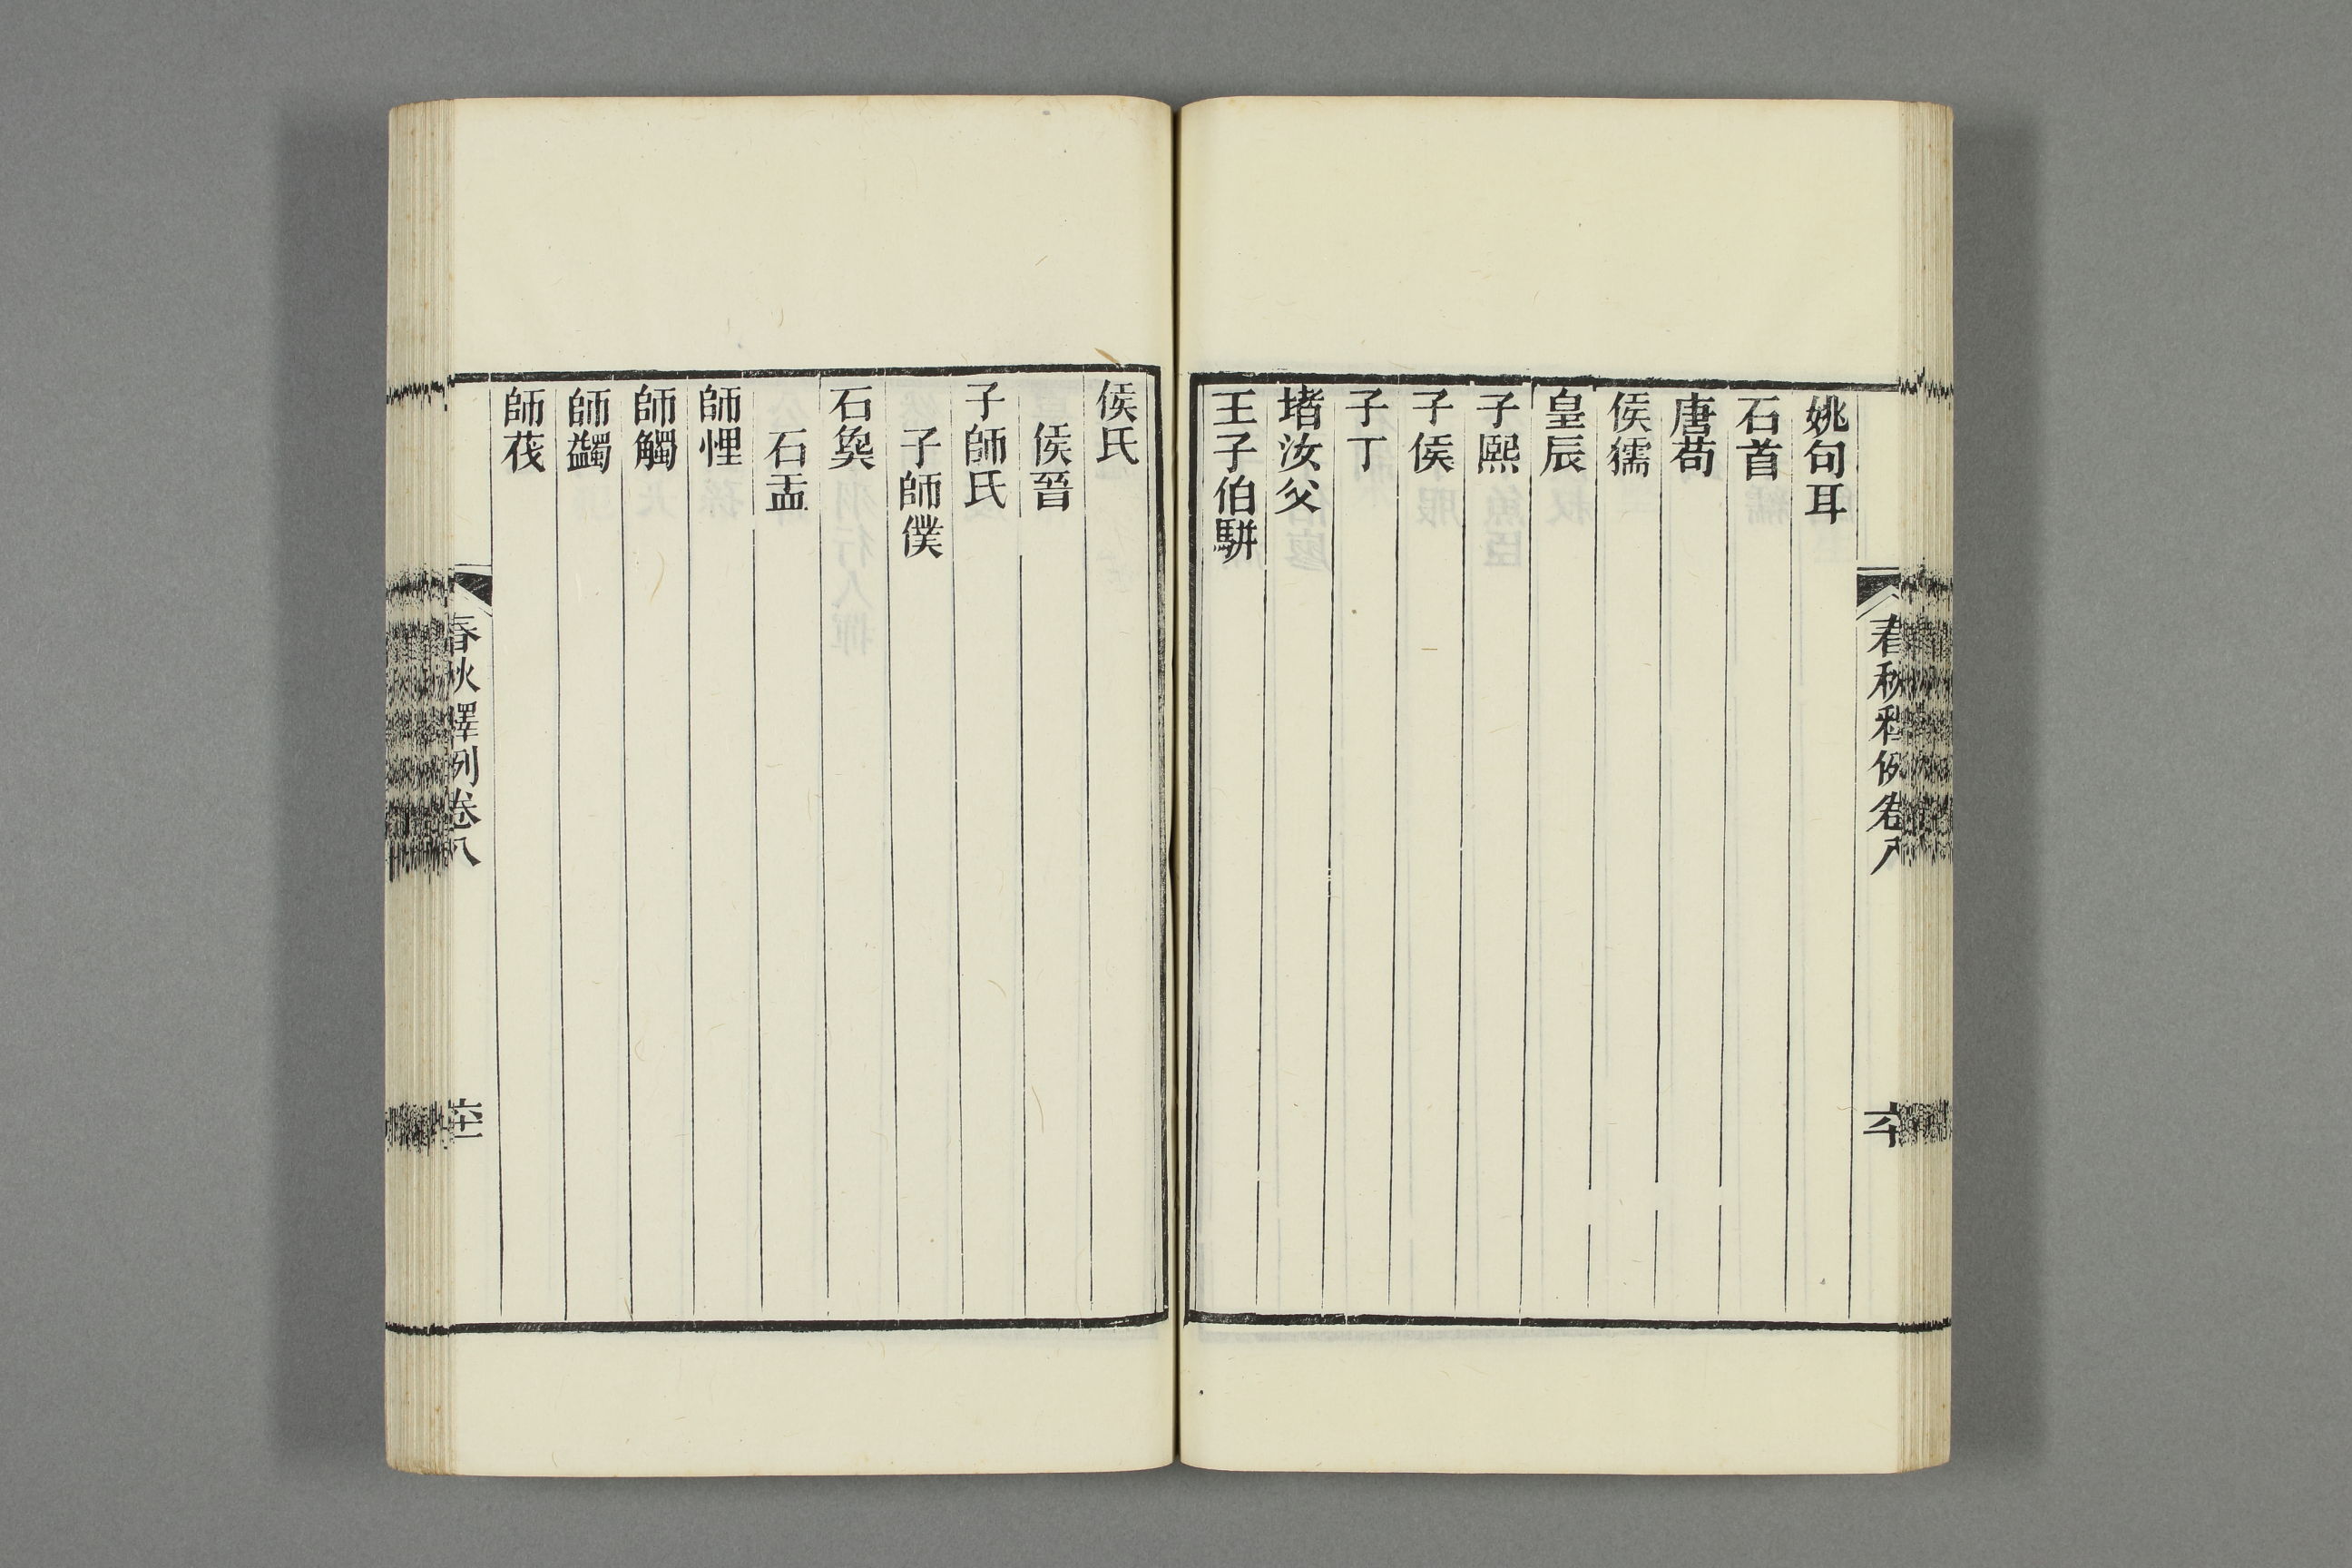 春秋釋例卷八
六十
姚句耳
石首
唐苟
侯獳
皇辰
子熙
子侯
子丁
堵汝父
王子伯駢
侯氏
侯晉
子師氏
子師僕
石㚟
石盂
師悝
師觸
師蠲
師茷
春秋釋例卷八
六十一